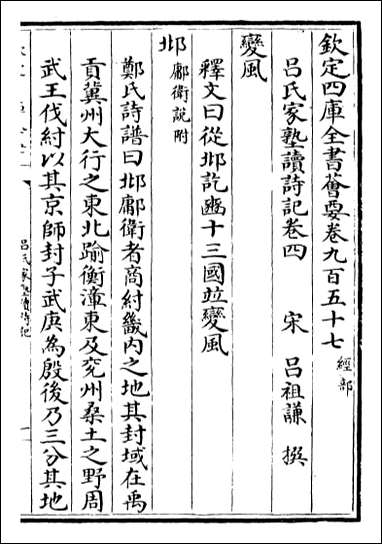 欽定四庫全書薈要卷九百五十七 經部
吕氏家塾讀詩記卷四 宋 吕祖謙 撰
變風
釋文曰從邶訖豳十三國竝變風
邶 鄘衛說附
鄭氏詩譜曰邶鄘衛者商紂畿內之地其封域在禹
貢冀州大行之東北踰衡漳東及兖州桑土之野周
武王伐紂以其京師封子武庚為殷後乃三分其地
吕氏家塾讀詩記